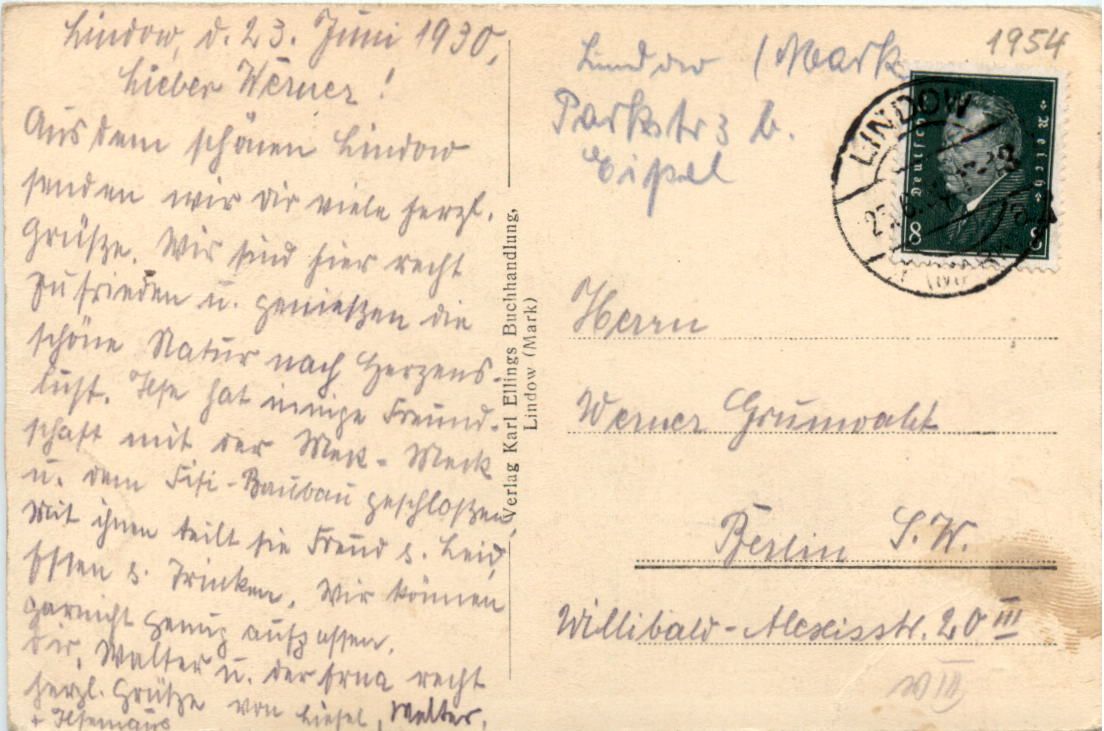 Lindow, d. 23. Juni 1930,
Lieber Werner!
Aus dem schönen Lindow
senden wir Dir viele herzl.
Grüße. Wir sind hier recht
zufrieden u. genießen die
schöne Natur nach Herzens-
lust. Ilse hat innige Freund-
schaft mit der Meck-Meck
u. dem Fifi-Baubau geschloßen.
Mit ihnen teilt sie Freud u. Leid,
Essen u. Trinken. Wir können
garnicht genug aufpassen.
Dir, Walter u. der Erna recht
herzl. Grüße von Liesel, Walter,
+ Ilsemaus
Verlag Karl Ellings Buchhandlung,
Lindow (Mark)
1954
Lindow (Mark
Parkstr 3 b.
Deutsches Reich
8 8
LINDOW
Herrn
Werner Grunwaldt
Berlin S.W.
Willibald-Alexisstr. 20 III